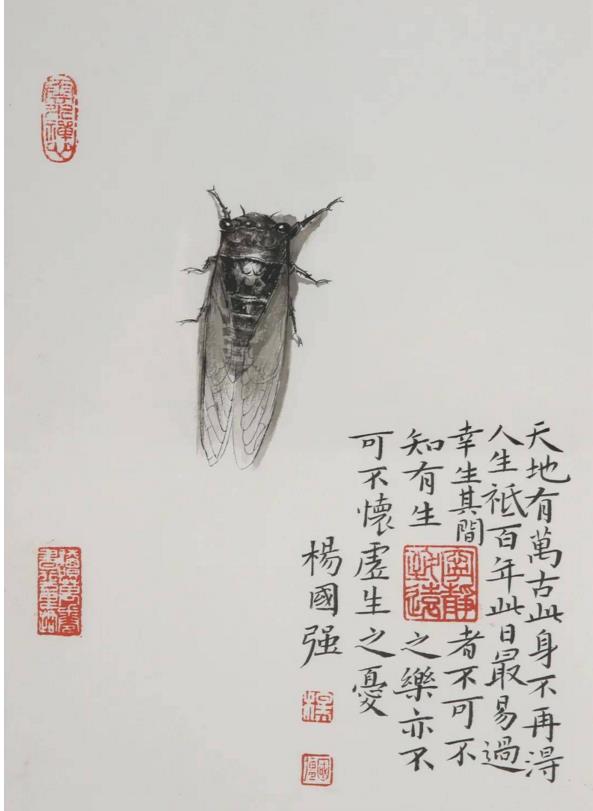 天地有萬古此身不再得
人生祗百年此日最易過
幸生其間者不可不
知有生之樂亦不
可不懷虛生之憂
楊國强
寧靜致遠